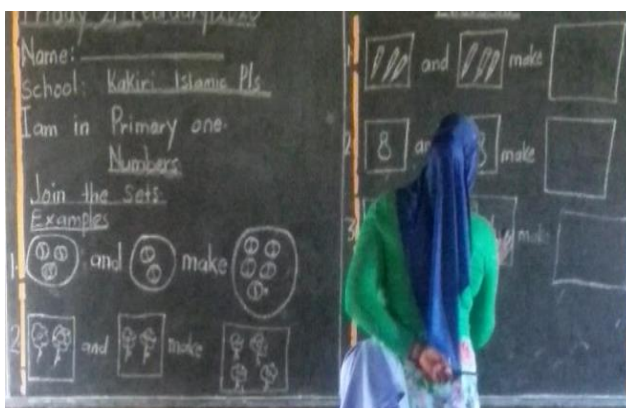 Friday 21 February 2020
Name:
School: Kakiri Islamic P/s
I am in Primary one.
Numbers
Join the Sets
Examples
1. and make
2 and make
1. and make
2 8 and 8 make
3 make